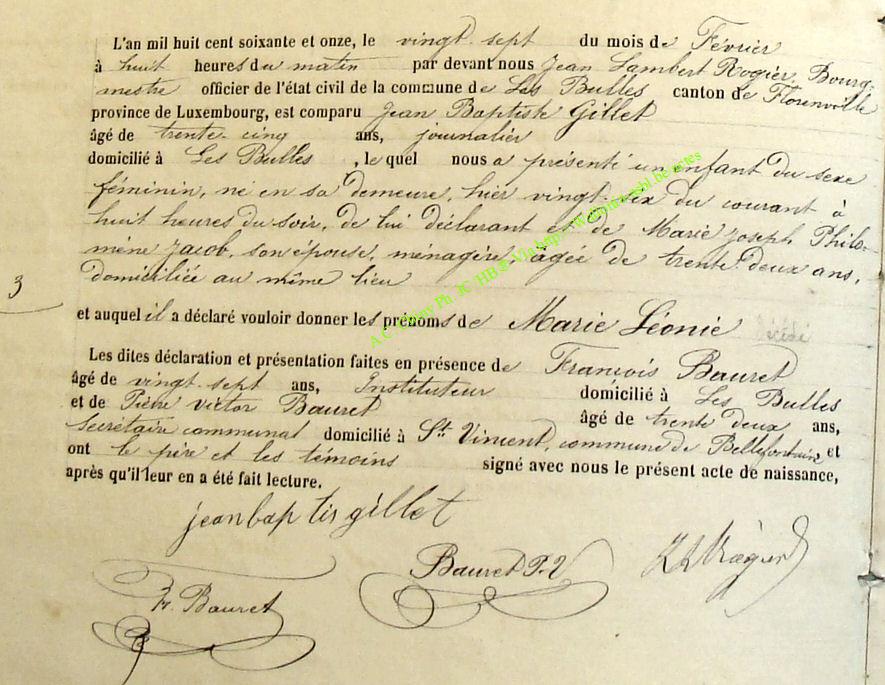 L'an mil huit cent soixante et onze, le vingt-sept du mois de Février
à huit heures du matin par devant nous Jean Lambert Rogier, Bourg-
mestre officier de l'état civil de la commune de Les Bulles canton de Florenville
province de Luxembourg, est comparu Jean Baptiste Gillet
âgé de trente-cinq ans, journalier
domicilié à Les Bulles, le quel nous a présenté un enfant du sexe
féminin, né en sa demeure, hier vingt-six du courant à
huit heures du soir, de lui déclarant et de Marie Joseph Philo-
mène Jacob, son épouse, ménagère, âgée de trente deux ans,
domiciliée au même lieu
3
et auquel il a déclaré vouloir donner les prénoms de Marie Léonie
Les dites déclaration et présentation faites en présence de François Bauret
âgé de vingt-sept ans, Instituteur domicilié à Les Bulles
et de Pierre Victor Bauret âgé de trente deux ans,
Secrétaire communal domicilié à St. Vincent, commune de Bellefontaine et
ont le père et les témoins signé avec nous le présent acte de naissance,
après qu'il leur en a été fait lecture.
jean bap tis gillet
Bauret P. V
Fr. Bauret